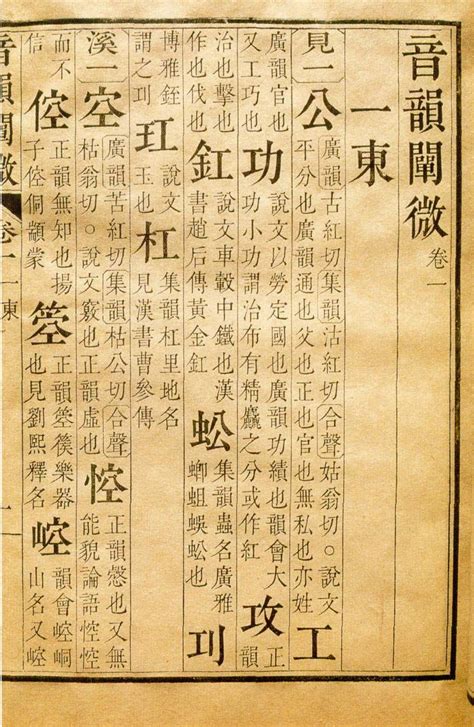 音韻闡微 卷一
一東
見一 公 廣韻古紅切集韻沽紅切合聲姑翁切○說文
平分也廣韻通也父也正也官也無私也亦姓 工
廣韻官也
又工巧也 功 說文以勞定國也廣韻功績也韻會大
功小功謂治布有精麤之分或作紅 攻 正
韻
治也擊也
作也伐也 釭 說文車轂中鐵也漢
書趙后傳黃金釭 蚣 集韻蟲名廣雅
蝍蛆蜈蚣也 㓚
博雅銍
謂之㓚 玒 說文
玉也 杠 集韻杠里地名
見漢書曹參傳
溪一 空 廣韻苦紅切集韻枯公切合聲
枯翁切○說文竅也正韻虛也 悾 正韻慤也又無
能貌論語悾悾
而不
信 倥 正韻無知也揚
子倥侗顓蒙 箜 正韻箜篌樂器
也見劉熙釋名 崆 韻會崆峒
山名又崆
音韻闡微 卷一 一東 一